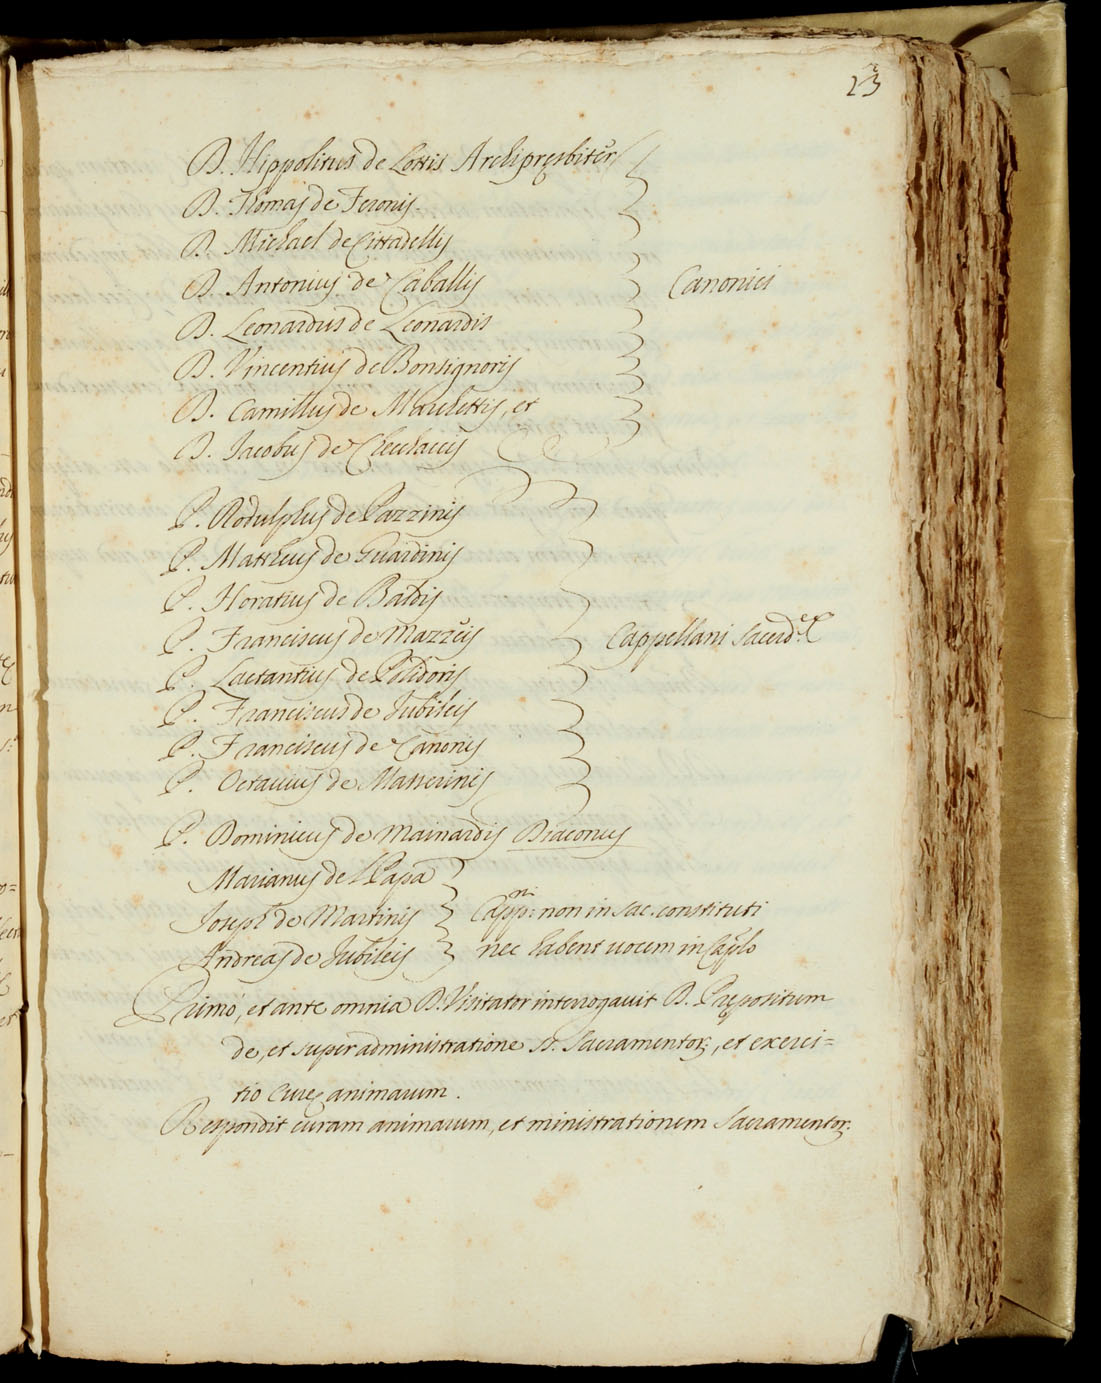 23
D. Hippolitus de Lottis Archipresbiter
D. Thomas de Feronis.
D. Michael de Cittadellis
D. Antonius de Caballis Canonici
D. Leonardus de Leonardis
D. Vincentius de Bonsignoris
D. Camillus de Maulettis, et
D. Iacobus de
P. Rodulphus de Pazzinis
P. Mattheus de Guardinis
P. Horatius de Baldis
P. Franciscus de Mazzeis Cappellani Sacerd.es
P. Lactantius de Polidoris
P. Franciscus de Iubileis
P. Franciscus de Canonis
P. Octavius de
P. Dominicus de Mainardis Diaconus
Marianus del Papa
Ioseph de Martinis Capp.ni non in sac. constituti
Andreas de Iubileis nec habent uocem in Caplo
Primo, et ante omnia D. Visitator interrogauit D. Prepositum
de, et super administratione ss. Sacramentor:, et exerci=
tio cure animarum.
Respondit curam animarum, et ministrationem Sacramentor: